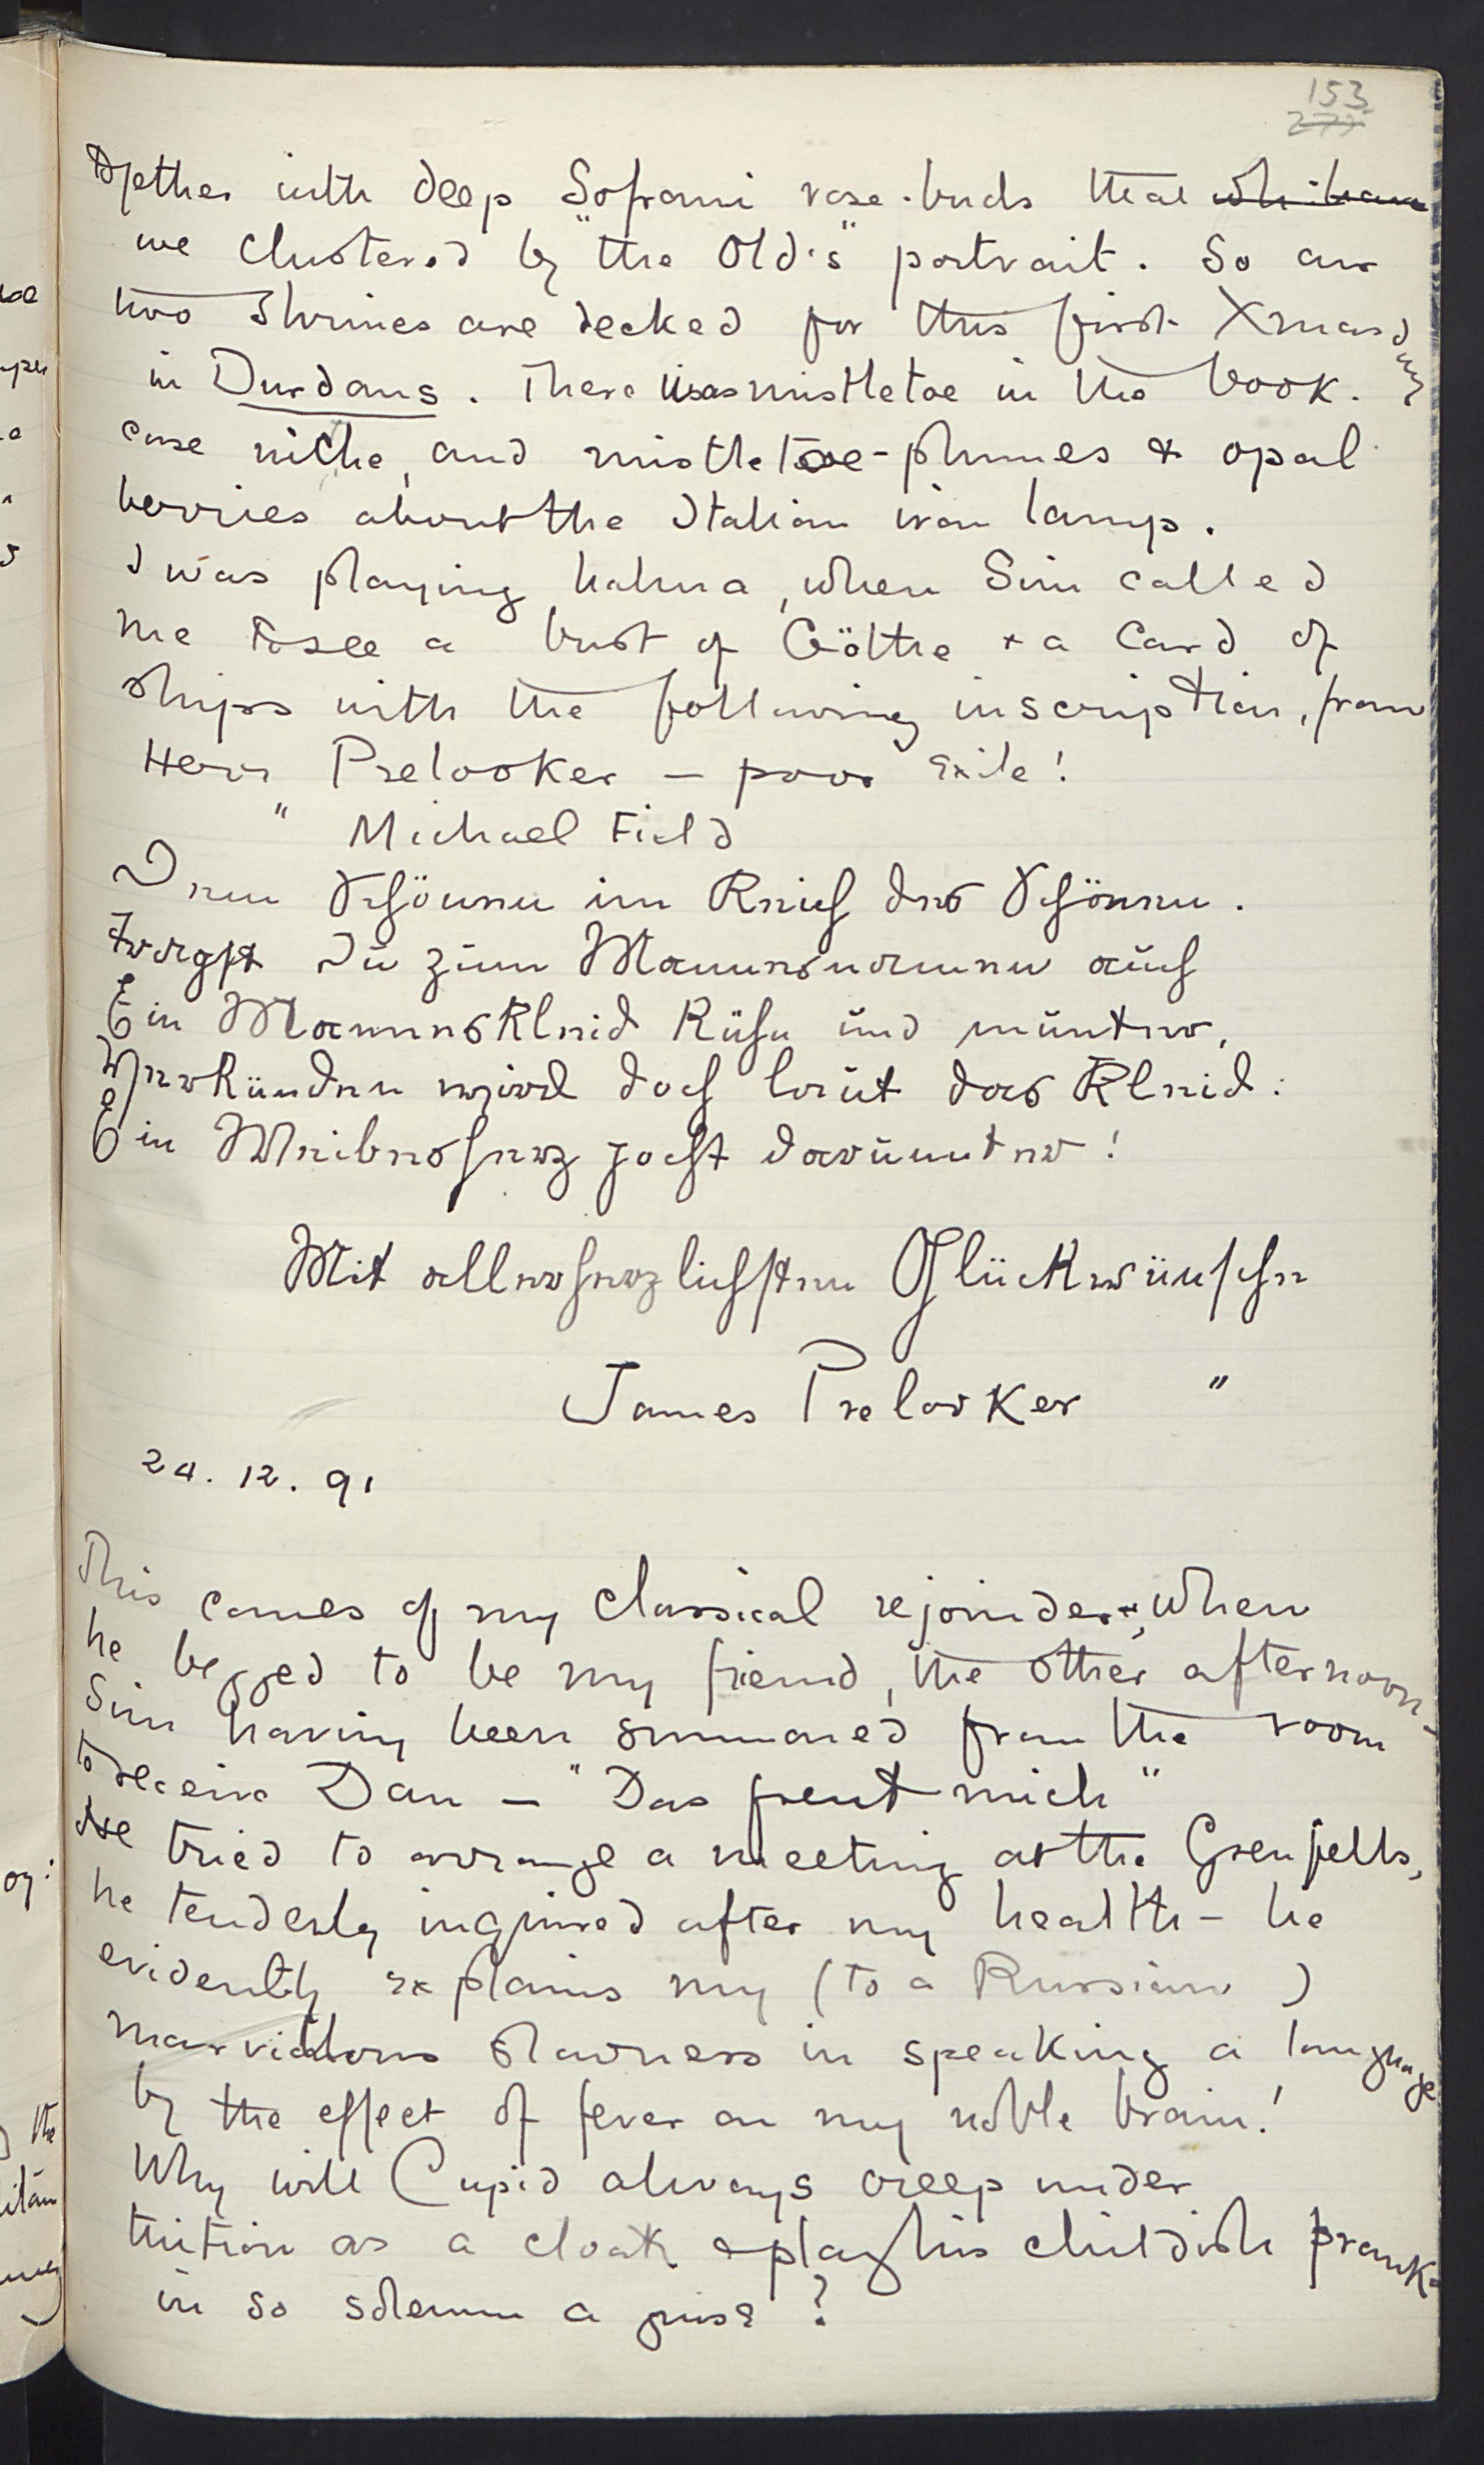 153
together with deep Soframi rose-buds that
we clustered by "the Old's" portrait. So our
two shrines are decked for this first Xmas day
in Durdans. There was mistletoe in the book-
case niche, and mistletoe-plumes & opal
berries about the Italian iron lamp.
I was playing halma, when Sim called
me to see a bust of Göthe + a card of
ships with the following inscription, from
Herr Prelooker — poor exile!
" Michael Field
Dem Schönen im Reich des Schönen.
Trägst Du zum Mannesnamen auch
Ein Manneskleid kühn und munter,
Verkünden wird doch laut das Kleid:
Ein Weibesherz pocht darunter!
Mit allerherzlichsten Glückwünschen
James Prelooker "
24. 12. 91
This comes of my classical rejoinder, when
he begged to be my friend, the other afternoon -
Sim having been summoned from the room
to receive Dan — "Das freut mich"
He tried to arrange a meeting at the Grenfells,
he tenderly inquired after my health - he
evidently explains my (to a Russian)
marvellous slowness in speaking a language
by the effect of fever on my noble brain!
Why will Cupid always creep under
tuition as a cloak & play his childish pranks
in so solemn a guise?